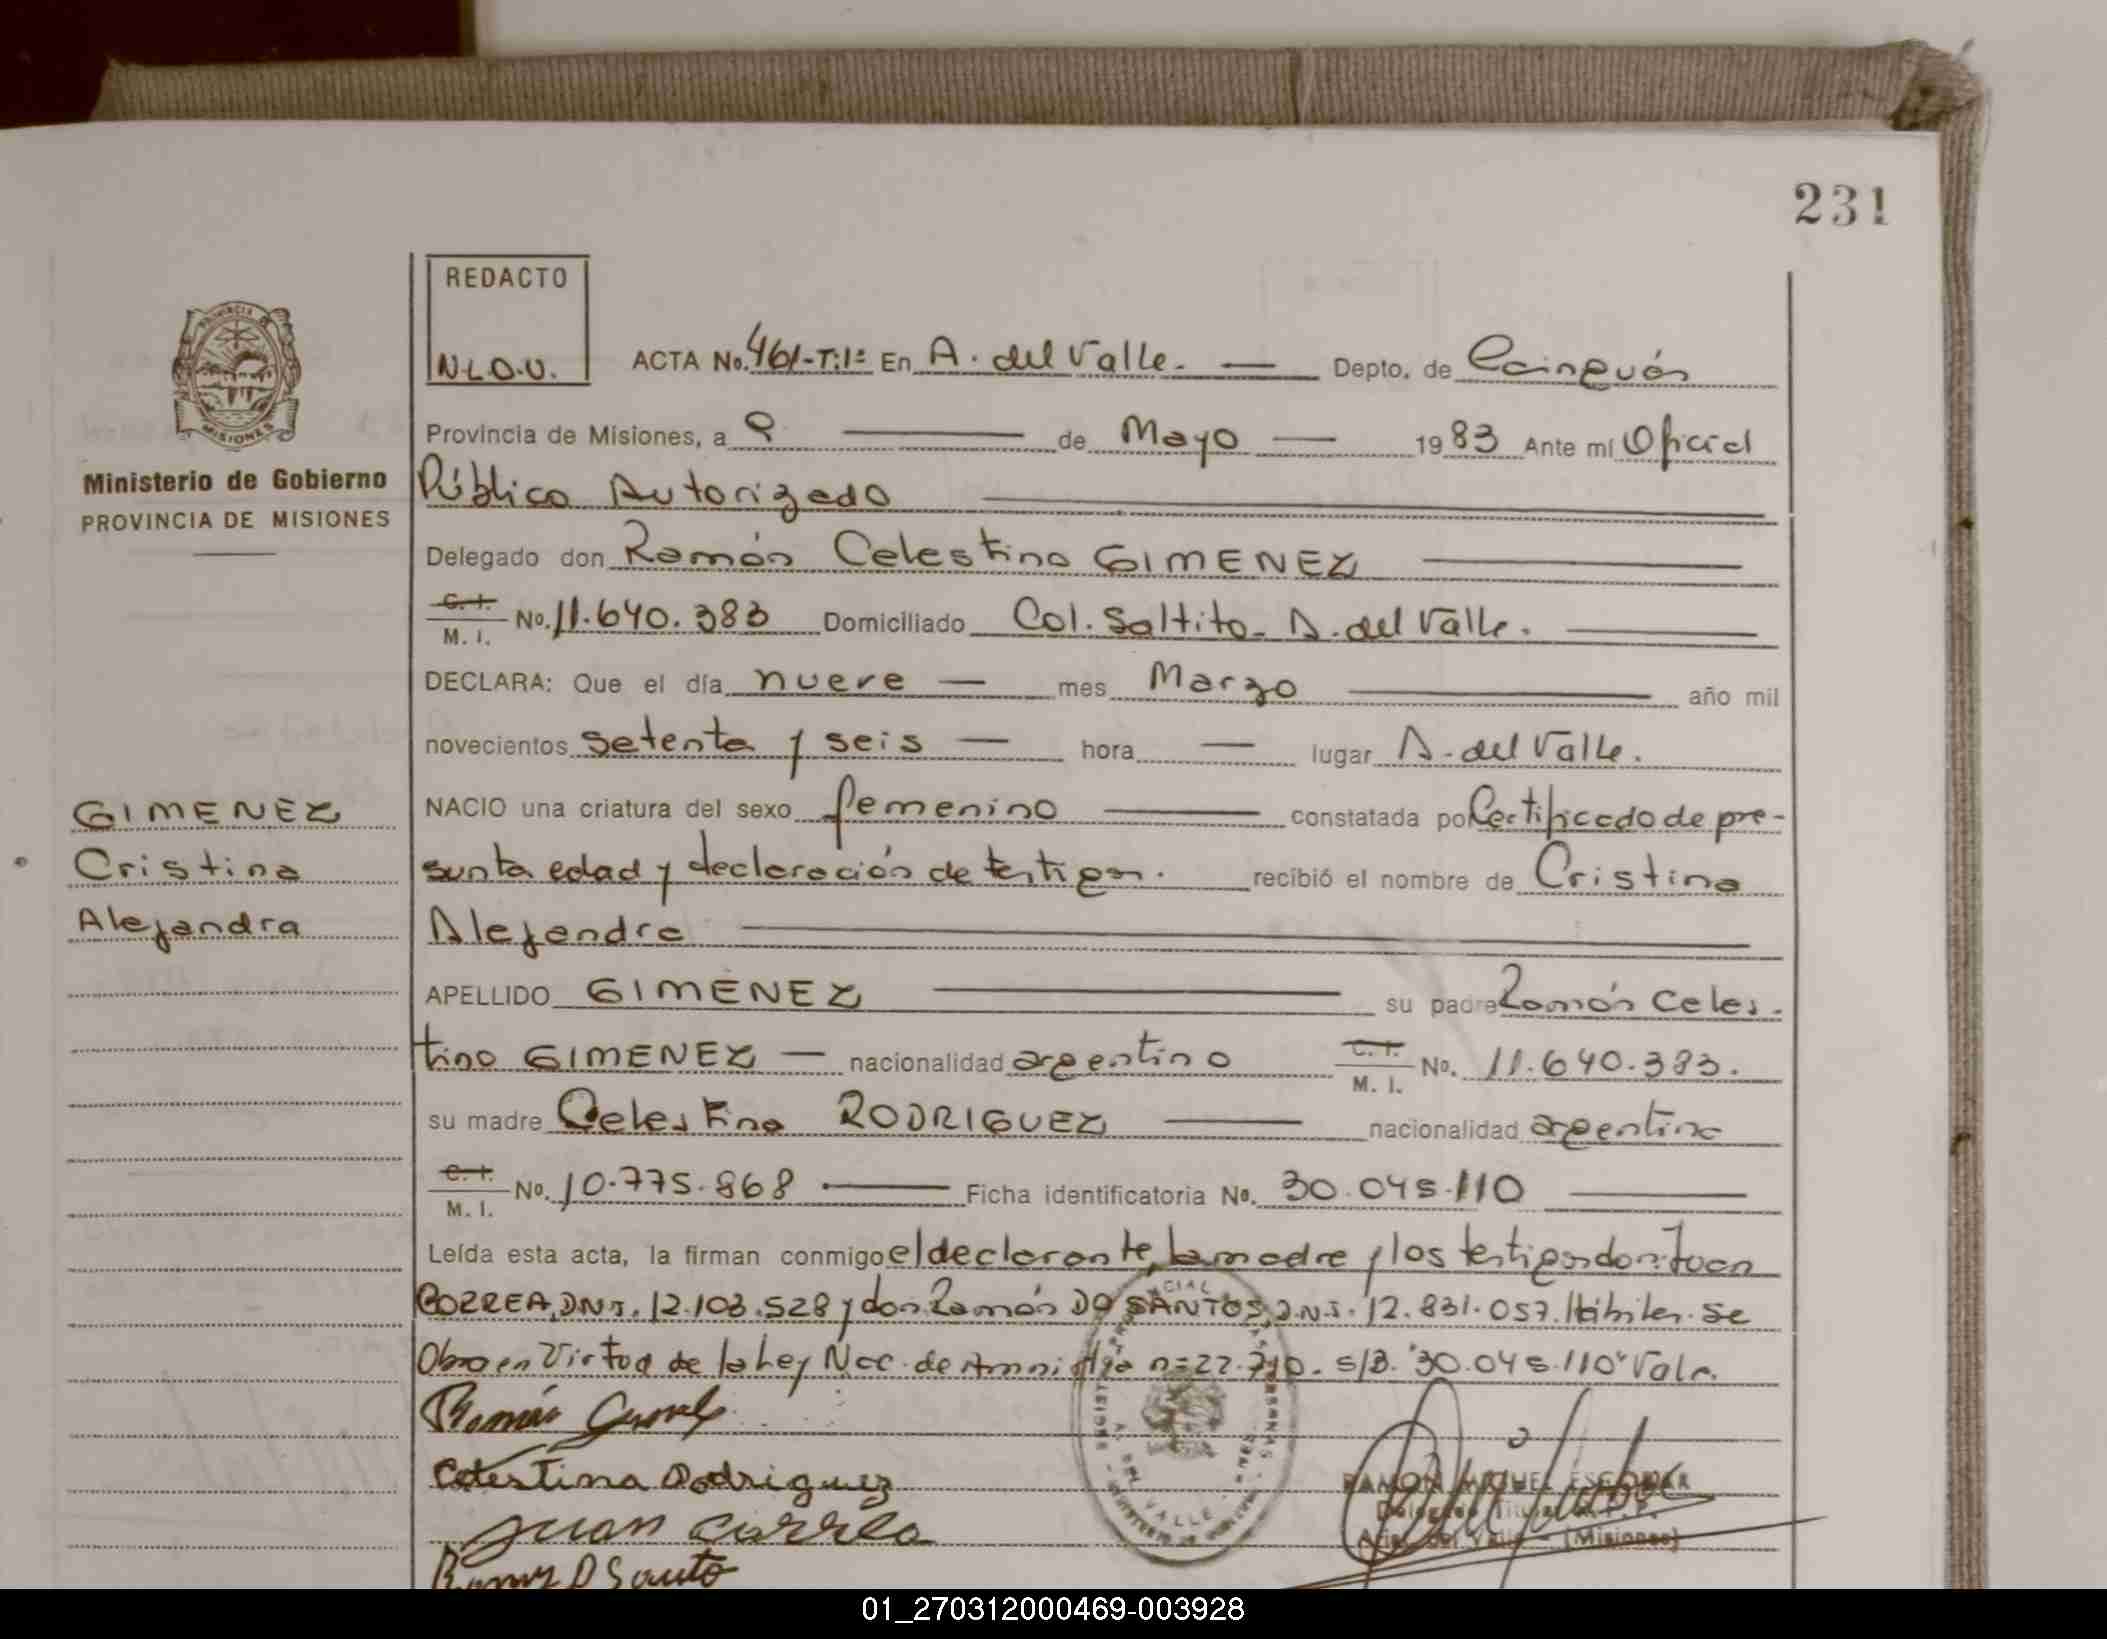 231
REDACTO
N.L.O.V.
ACTA No. 461-T:1º En A. del Valle. — Depto. de Cainguás
Provincia de Misiones, a 9 — de Mayo — 1983 Ante mí Oficial
Público Autorizado
Delegado don Ramón Celestino GIMENEZ
C. I. M. I. No. 11.640.383 Domiciliado Col. Saltito. A. del Valle.
DECLARA: Que el día nueve — mes Marzo — año mil
novecientos setenta y seis — hora — lugar A. del Valle.
NACIO una criatura del sexo femenino — constatada por Certificado de pre-
sunta edad y declaración de testigos. recibió el nombre de Cristina
Alejandra
APELLIDO GIMENEZ — su padre Ramón Celes-
tino GIMENEZ — nacionalidad argentino C. I. M. I. No. 11.640.383.
su madre Celestina RODRIGUEZ — nacionalidad argentina
C. I. M. I. No. 10.775.868 — Ficha identificatoria No. 30.045.110
Leída esta acta, la firman conmigo el declarante, la madre y los testigos don: Juan
CORREA, D.N.I. 12.103.528 y don Ramón DO SANTOS, D.N.I. 12.831.057. Hábiles. Se
Obro en Virtud de la Ley Nac. de Amnistía nº 22.710. S/B. "30.045.110" Vale.
Celestina Rodriguez
Juan Correa
RAMON MIGUEL ESCOBAR
Delegado Titular
Aris. del Valle - (Misiones)
PROVINCIA DE
MISIONES
Ministerio de Gobierno
PROVINCIA DE MISIONES
GIMENEZ
Cristina
Alejandra
01_270312000469-003928